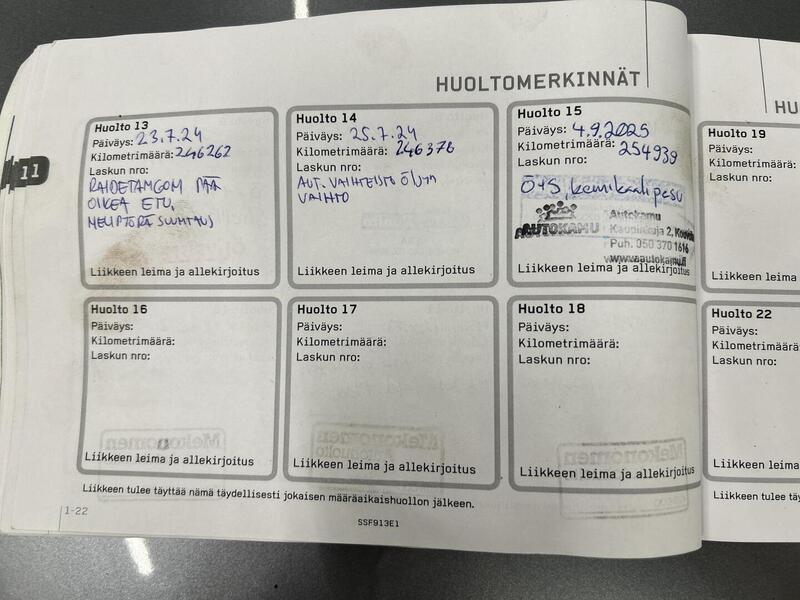 HUOLTOMERKINNÄT
HU
11
Huolto 13
Päiväys: 23.7.24
Kilometrimäärä: 246262
Laskun nro:
RAIDETANGON PÄÄ
OIKEA ETU,
NELIPYÖRÄ SUUNTAUS
Liikkeen leima ja allekirjoitus
Huolto 14
Päiväys: 25.7.24
Kilometrimäärä: 246376
Laskun nro:
AUT. VAIHTEISTO ÖLJYN
VAIHTO
Liikkeen leima ja allekirjoitus
Huolto 15
Päiväys: 4.9.2025
Kilometrimäärä: 254939
Laskun nro:
Ö+S, kemikaalipesu
AUTOKAMU
Autokamu
Kaupinkuja 2,
Puh. 050 370 1616
www.autokamu.fi
Liikkeen leima ja allekirjoitus
Huolto 19
Päiväys:
Kilometrimäärä:
Laskun nro:
Liikkeen leima
Huolto 16
Päiväys:
Kilometrimäärä:
Laskun nro:
Liikkeen leima ja allekirjoitus
Huolto 17
Päiväys:
Kilometrimäärä:
Laskun nro:
Liikkeen leima ja allekirjoitus
Huolto 18
Päiväys:
Kilometrimäärä:
Laskun nro:
Liikkeen leima ja allekirjoitus
Huolto 22
Päiväys:
Kilometrimäärä:
Laskun nro:
Liikkeen leima
Liikkeen tulee täyttää nämä täydellisesti jokaisen määräaikaishuollon jälkeen.
Liikkeen tulee täy
1-22
SSF913E1